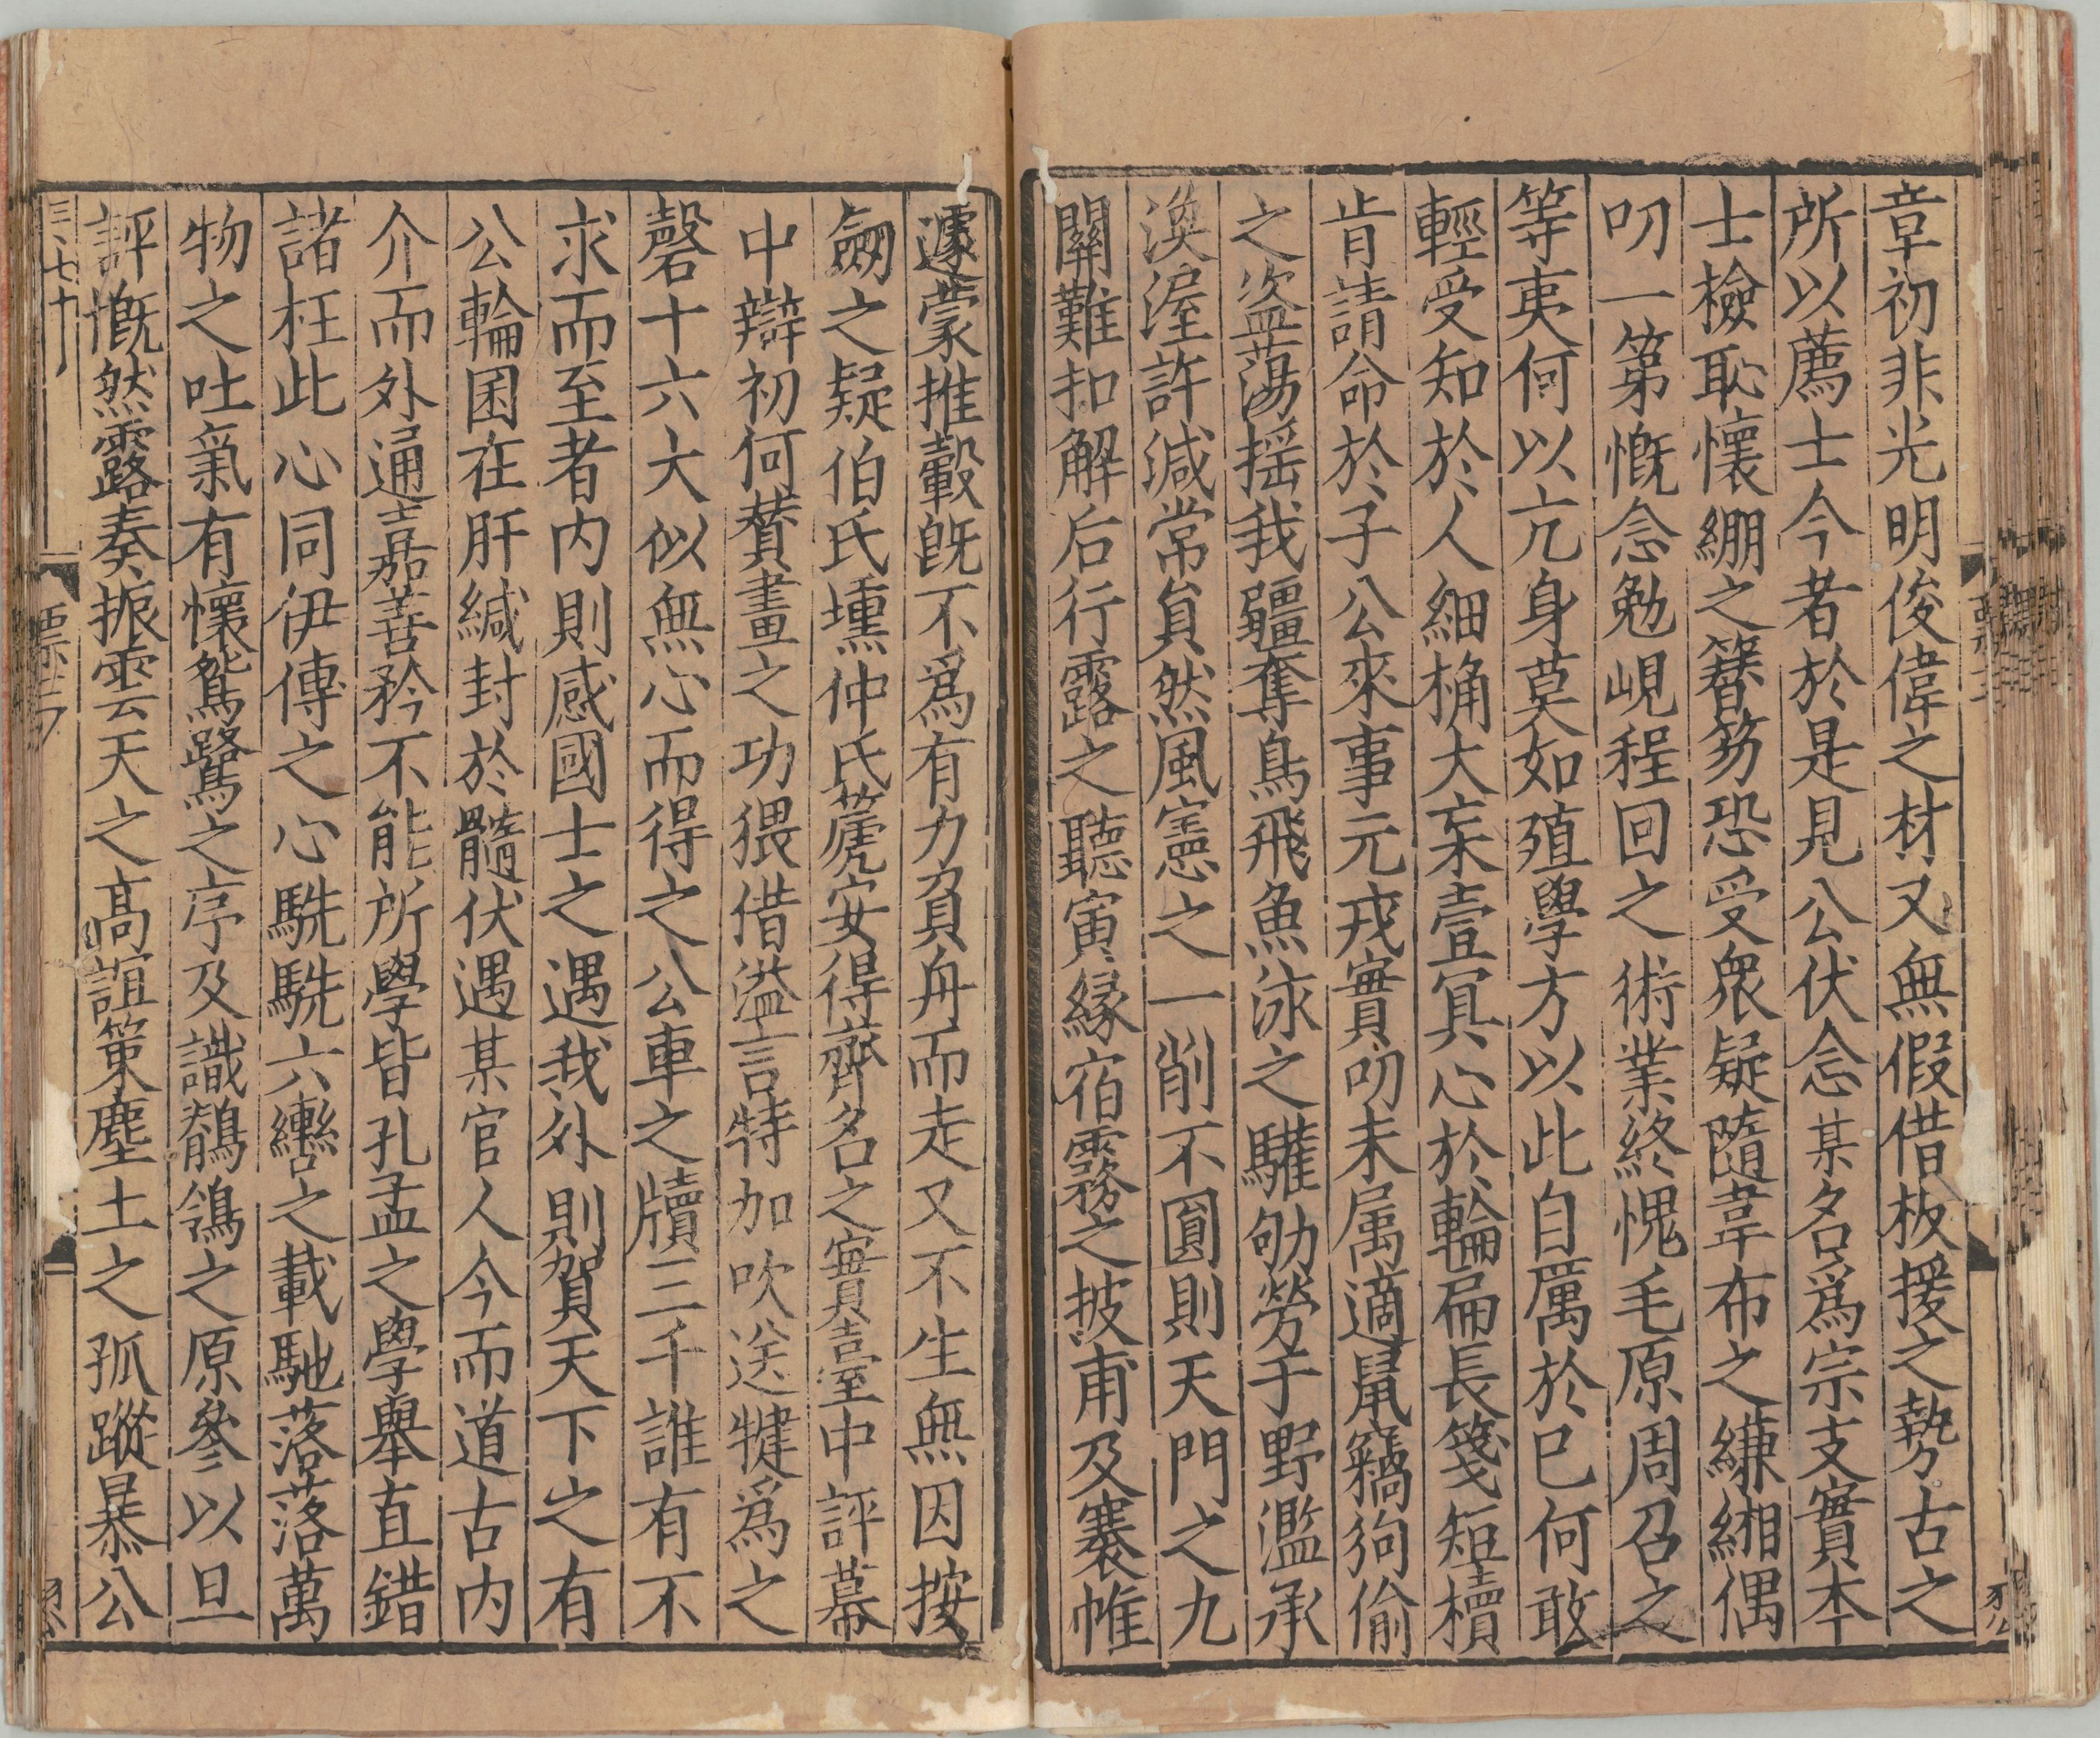 章初非光明俊偉之材又無假借扳援之勢古之
所以薦士今者於是見公伏念某名爲宗支實本
士檢恥懷綳之簪笏恐受衆疑隨韋布之縑緗偶
叨一第慨念勉峴程回之術業終愧毛原周召之
等夷何以亢身莫如殖學方以此自厲於已何敢
輕受知於人細桷大杗壹冥心於輪扁長箋短櫝
肯請命於子公來事元戎實叨末属適鼠竊狗偷
之盜蕩揺我疆奪鳥飛魚泳之驩劬勞于野濫承
渙渥許減常貟然風憲之一削不圓則天門之九
關難扣解后行露之聽寅縁宿霧之披甫及褰帷
遽蒙推轂旣不爲有力負舟而走又不生無因按
劒之疑伯氏壎仲氏箎安得齊名之實臺中評幕
中辯初何賛畫之功猥借溢言特加吹送犍爲之
磬十六大似無心而得之公車之牘三千誰有不
求而至者内則感國士之遇我外則賀天下之有
公輪囷在肝緘封於髓伏遇某官人今而道古内
介而外通嘉善矜不能所學皆孔孟之學舉直錯
諸枉此心同伊傳之心駪駪六轡之載馳落落萬
物之吐氣有懷鴛鷺之序及識鶺鴒之原參以旦
評慨然露奏振雲天之高誼策塵土之孤蹤暴公